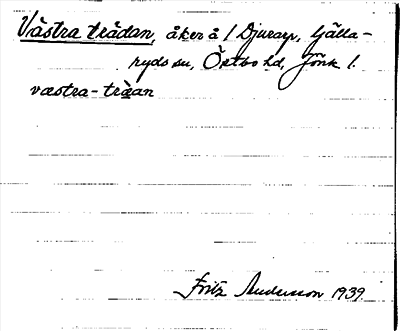 Västra trädan, åker å / Djurary, Gälla-
ryds sn, Östbo hd, Jönk l.
væstra-trà̤an
Fritz Andersson 1939.